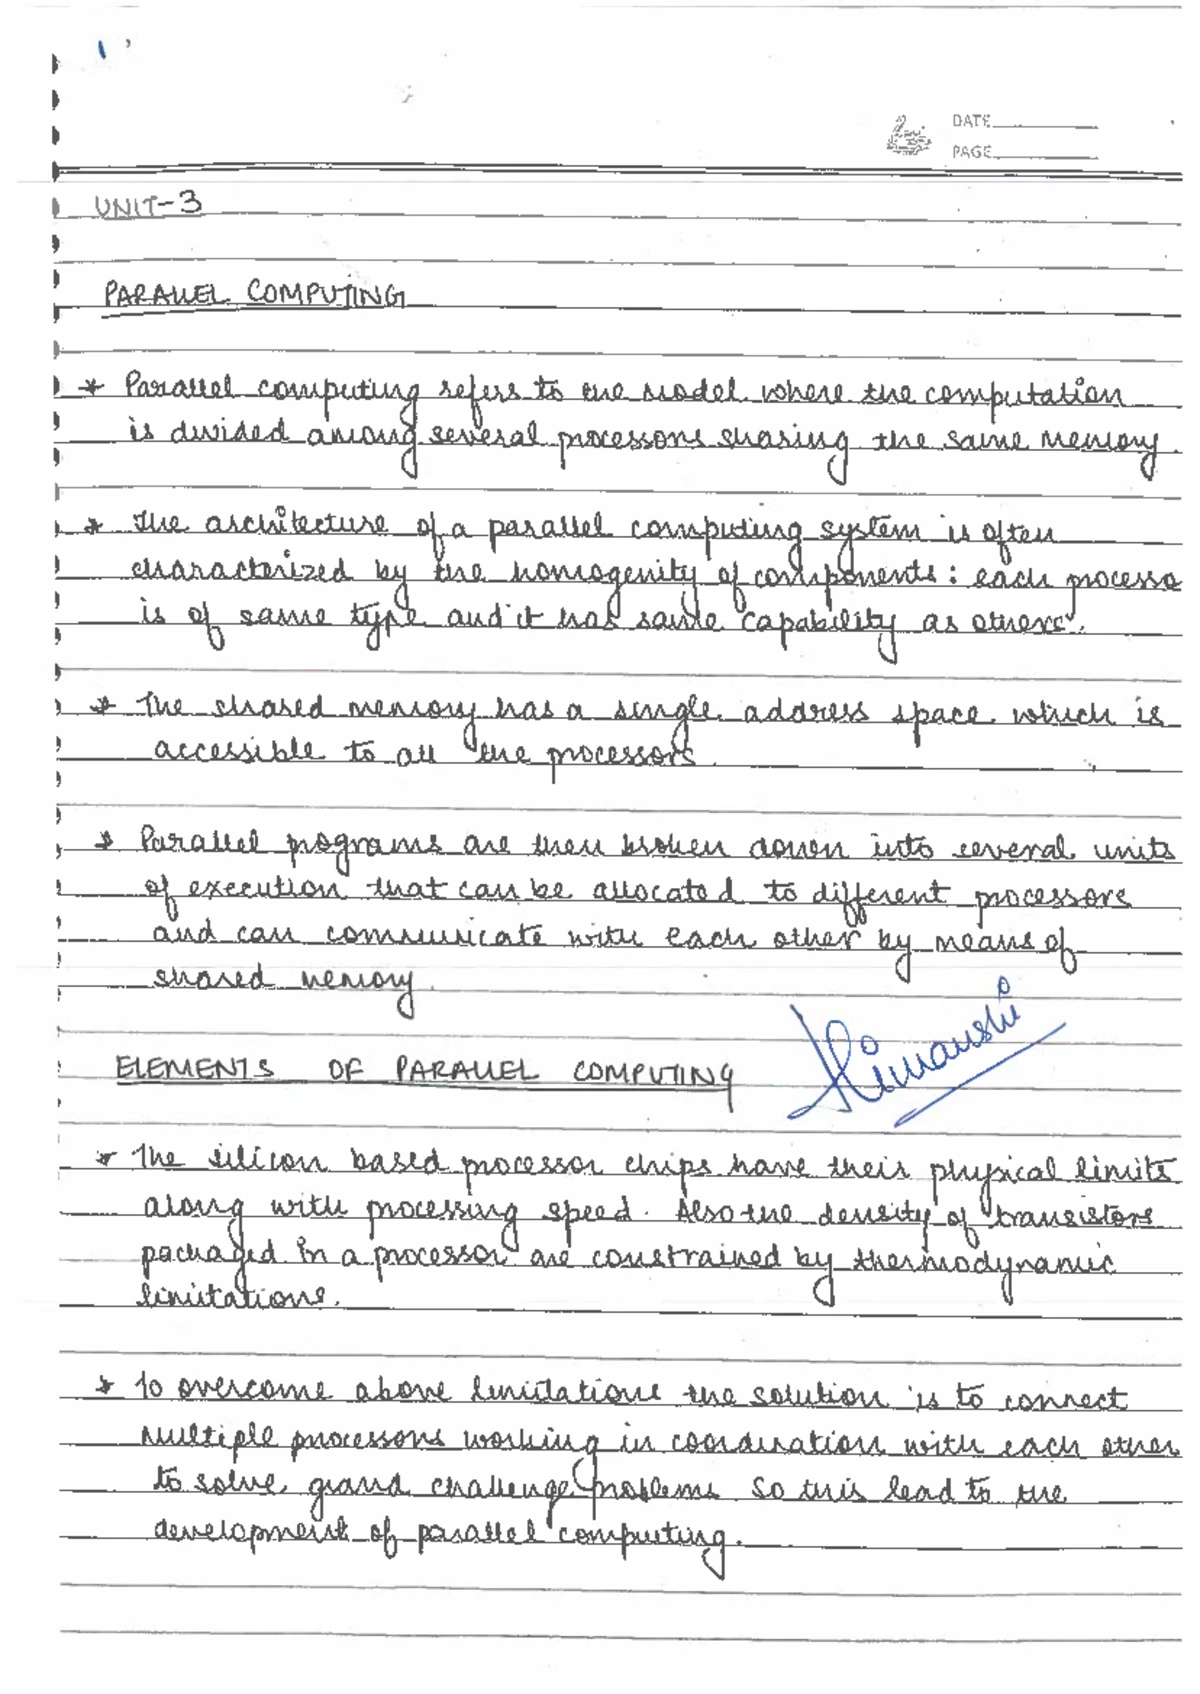 DATE
PAGE
UNIT-3
PARALLEL COMPUTING
* Parallel computing refers to the model where the computation
is divided among several processors sharing the same memory.
* The architecture of a parallel computing system is often
characterized by the homogenity of components: each processo
is of same type and it has same capability as others.
* The shared memory has a single address space which is
accessible to all the processors.
* Parallel programs are then broken down into several units
of execution that can be allocated to different processors
and can communicate with each other by means of
shared memory.
Himanshi
ELEMENTS OF PARALLEL COMPUTING
* The silicon based processor chips have their physical limits
along with processing speed. Also the density of transistors
packaged in a processor are constrained by thermodynamic
limitations.
* To overcome above limitations the solution is to connect
multiple processors working in coordination with each other
to solve grand challenge problems. So this lead to the
development of parallel computing.